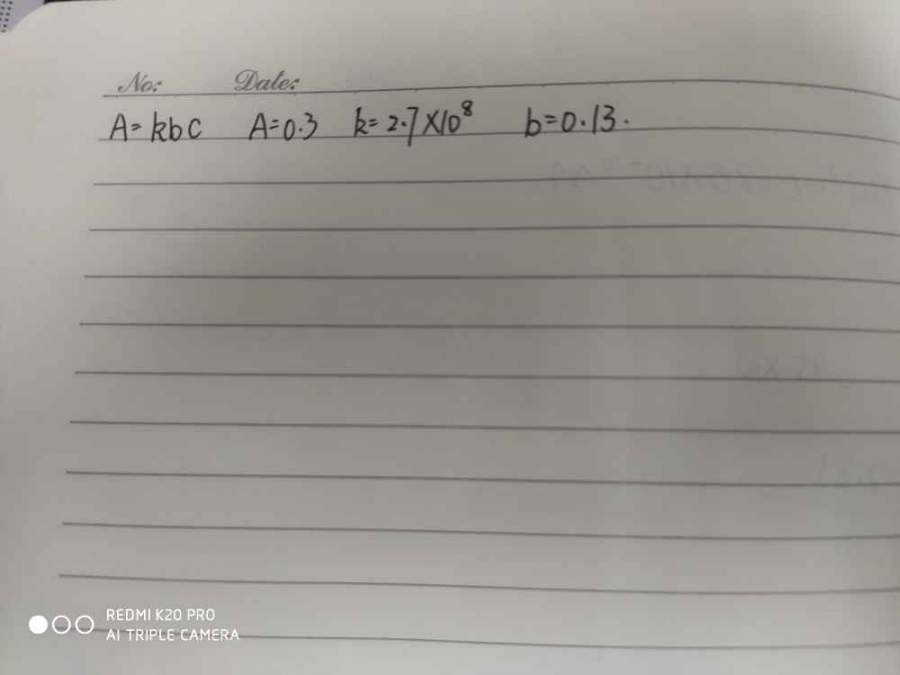 No: Date:
A=kbc A=0.3 k=2.7×10⁸ b=0.13.
REDMI K20 PRO
AI TRIPLE CAMERA